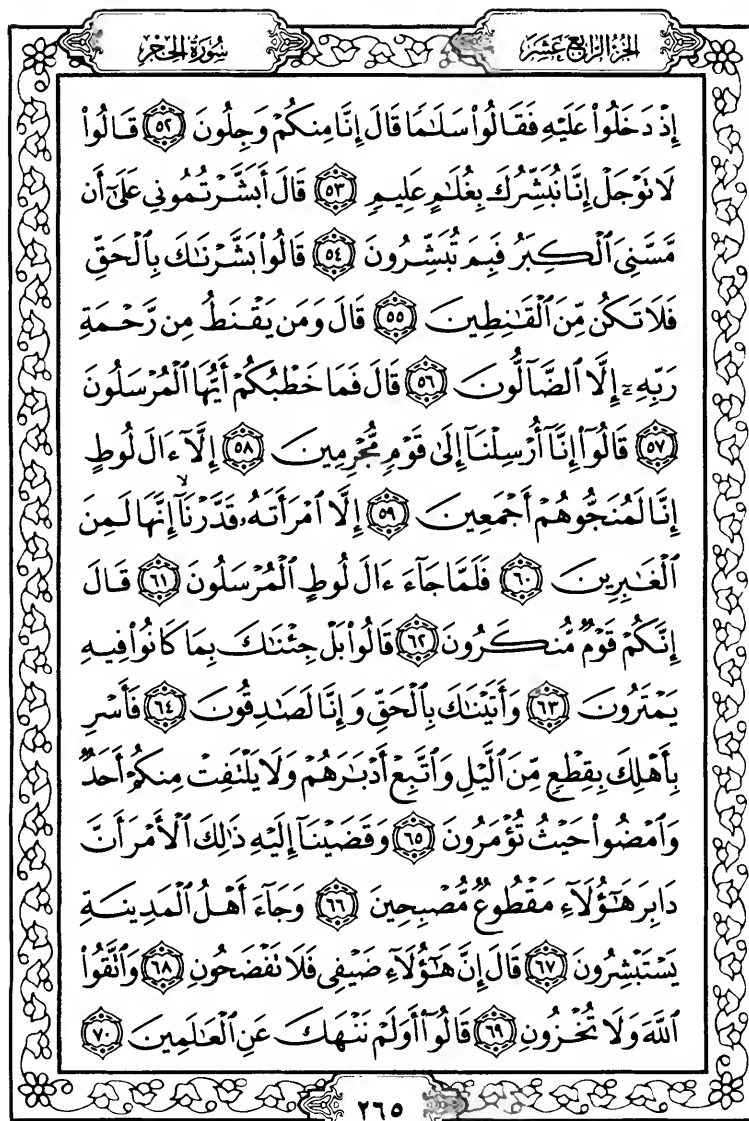 الجزء الرابع عشر
سورة الحجر
إِذْ دَخَلُوا۟ عَلَيْهِ فَقَالُوا۟ سَلَٰمًا قَالَ إِنَّا مِنكُمْ وَجِلُونَ ٥٢ قَالُوا۟
لَا تَوْجَلْ إِنَّا نُبَشِّرُكَ بِغُلَٰمٍ عَلِيمٍ ٥٣ قَالَ أَبَشَّرْتُمُونِي عَلَىٰٓ أَن
مَّسَّنِيَ ٱلْكِبَرُ فَبِمَ تُبَشِّرُونَ ٥٤ قَالُوا۟ بَشَّرْنَٰكَ بِٱلْحَقِّ
فَلَا تَكُن مِّنَ ٱلْقَٰنِطِينَ ٥٥ قَالَ وَمَن يَقْنَطُ مِن رَّحْمَةِ
رَبِّهِۦٓ إِلَّا ٱلضَّآلُّونَ ٥٦ قَالَ فَمَا خَطْبُكُمْ أَيُّهَا ٱلْمُرْسَلُونَ
٥٧ قَالُوٓا۟ إِنَّآ أُرْسِلْنَآ إِلَىٰ قَوْمٍ مُّجْرِمِينَ ٥٨ إِلَّآ ءَالَ لُوطٍ
إِنَّا لَمُنَجُّوهُمْ أَجْمَعِينَ ٥٩ إِلَّا ٱمْرَأَتَهُۥ قَدَّرْنَآ ۙ إِنَّهَا لَمِنَ
ٱلْغَٰبِرِينَ ٦٠ فَلَمَّا جَآءَ ءَالَ لُوطٍ ٱلْمُرْسَلُونَ ٦١ قَالَ
إِنَّكُمْ قَوْمٌ مُّنكَرُونَ ٦٢ قَالُوا۟ بَلْ جِئْنَٰكَ بِمَا كَانُوا۟ فِيهِ
يَمْتَرُونَ ٦٣ وَأَتَيْنَٰكَ بِٱلْحَقِّ وَإِنَّا لَصَٰدِقُونَ ٦٤ فَأَسْرِ
بِأَهْلِكَ بِقِطْعٍ مِّنَ ٱلَّيْلِ وَٱتَّبِعْ أَدْبَٰرَهُمْ وَلَا يَلْتَفِتْ مِنكُمْ أَحَدٌ
وَٱمْضُوا۟ حَيْثُ تُؤْمَرُونَ ٦٥ وَقَضَيْنَآ إِلَيْهِ ذَٰلِكَ ٱلْأَمْرَ أَنَّ
دَابِرَ هَٰٓؤُلَآءِ مَقْطُوعٌ مُّصْبِحِينَ ٦٦ وَجَآءَ أَهْلُ ٱلْمَدِينَةِ
يَسْتَبْشِرُونَ ٦٧ قَالَ إِنَّ هَٰٓؤُلَآءِ ضَيْفِي فَلَا تَفْضَحُونِ ٦٨ وَٱتَّقُوا۟
ٱللَّهَ وَلَا تُخْزُونِ ٦٩ قَالُوٓا۟ أَوَلَمْ نَنْهَكَ عَنِ ٱلْعَٰلَمِينَ ٧٠
٢٦٥